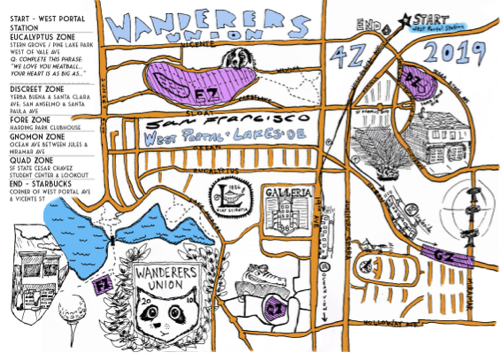 START - WEST PORTAL
STATION
EUCALYPTUS ZONE
STERN GROVE / PINE LAKE PARK
WEST OF VALE AVE
Q: COMPLETE THIS PHRASE:
"WE LOVE YOU MEATBALL...
YOUR HEART IS AS BIG AS..."
DISCREET ZONE
YERBA BUENA & SANTA CLARA
AVE, SAN ANSELMO & SANTA
PAULA AVE
FORE ZONE
HARDING PARK CLUBHOUSE
GNOMON ZONE
OCEAN AVE BETWEEN JULES &
MIRAMAR AVE
QUAD ZONE
SF STATE CESAR CHAVEZ
STUDENT CENTER & LOOKOUT
END - STARBUCKS
CORNER OF WEST PORTAL AVE
& VICENTE ST
WANDERERS
UNION
VICENTE
END
START
WEST PORTAL STATION
4Z 2019
EZ
DZ
SLOAT
SAN FRANCISCO
WEST PORTAL - LAKESIDE
OCEAN
EUCALYPTUS
GALLERIA
19TH AVE
WANDERERS
UNION
20 10
FZ
GZ
MIRAMAR
HOLLOWAY AVE